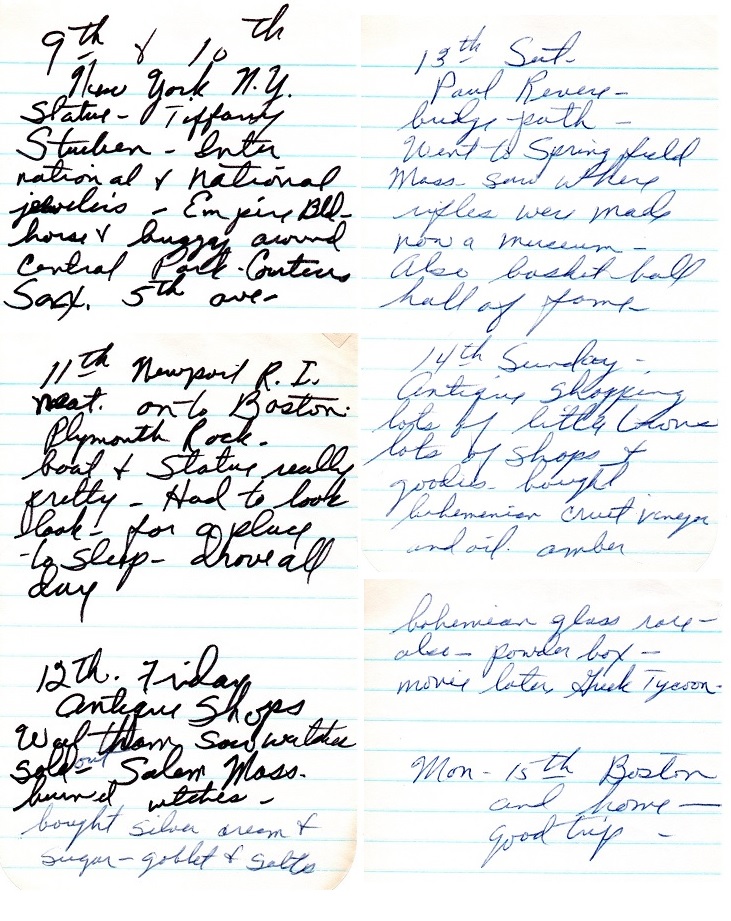 9th & 10th
New York N.Y.
Statue - Tiffany
Stueben - Inter
national & National
jewelers - Empire Bld-
horse & buggy around
Central Park - Couteus
Sax. 5th ave-
11th Newport R.I.
neat. on to Boston.
Plymouth Rock.
boat & Statue really
pretty - Had to look
look - for a place
to sleep - drove all
day
12th. Friday
Antique Shops
Waltham saw watches
sold out - Salem Mass.
burned witches -
bought silver cream &
sugar - goblet & salts
13th Sat-
Paul Revere -
bridge path -
Went to Springfield
Mass - saw where
rifles wer made
now a museum -
Also basket ball
hall of fame -
14th Sunday -
Antique Shopping
lots of little towns
lots of shops &
goodies - bought
bohemenian cruet vinegar
and oil. amber
bohemian glass rare -
also - powder box -
movie later Greek Tycoon -
Mon - 15th Boston
and home -
good trip -